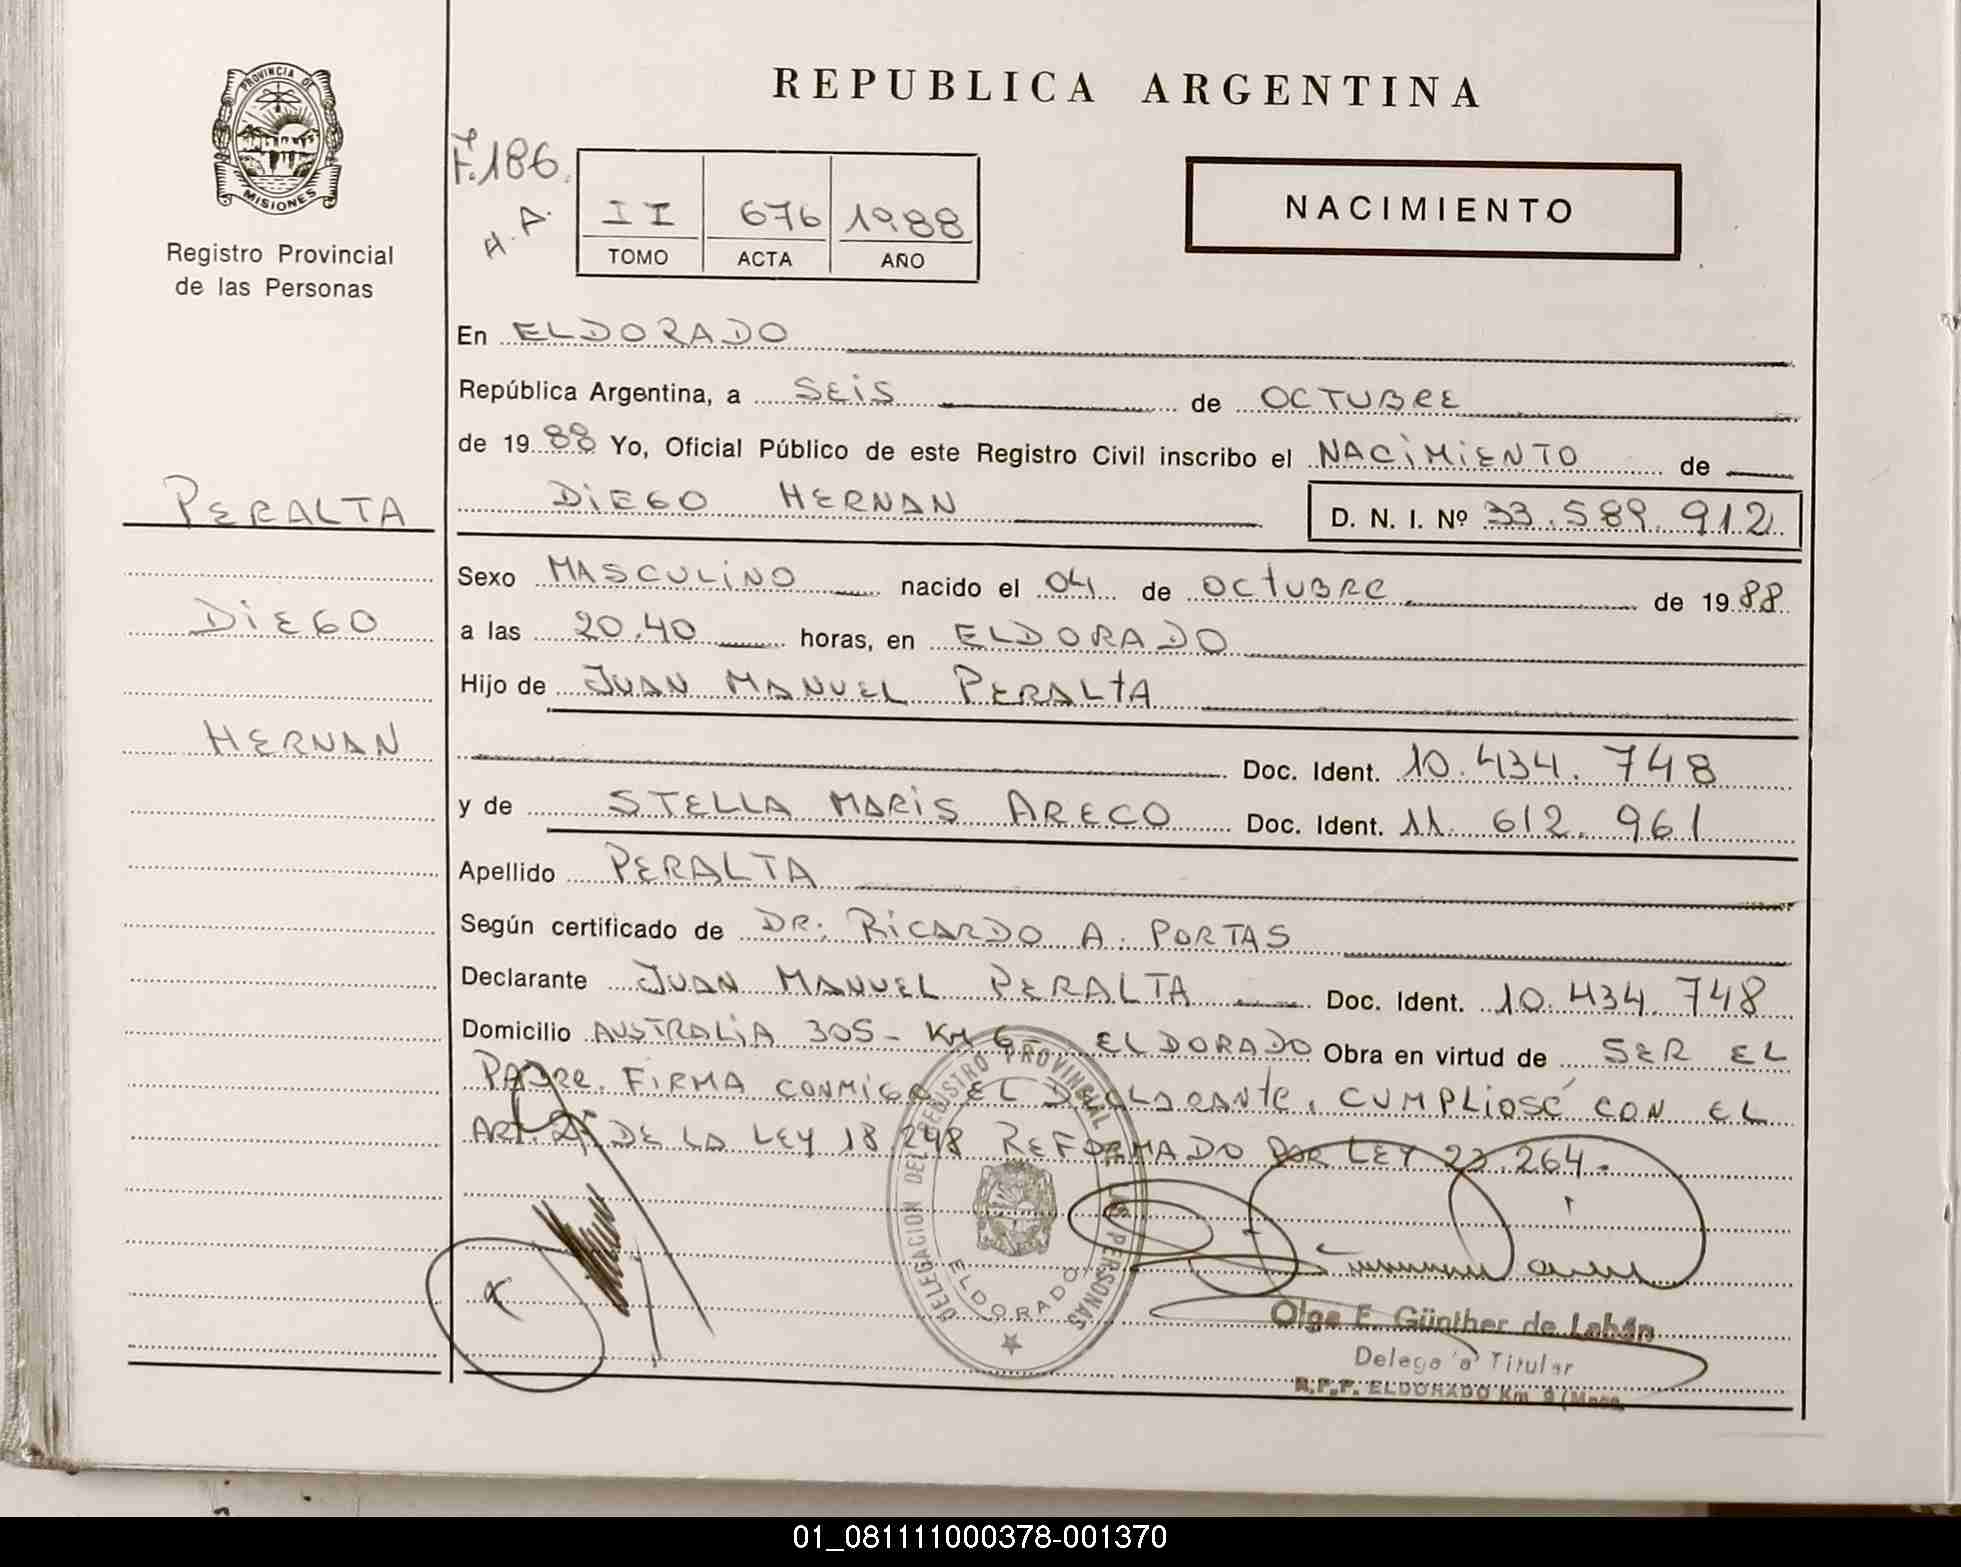 PROVINCIA DE
MISIONES
Registro Provincial
de las Personas
PERALTA
DIEGO
HERNAN
REPUBLICA ARGENTINA
F. 186.
H. A.
II 676 1988
TOMO ACTA AÑO
NACIMIENTO
En ELDORADO
República Argentina, a SEIS de OCTUBRE
de 19 88 Yo, Oficial Público de este Registro Civil inscribo el NACIMIENTO de
DIEGO HERNAN D. N. I. Nº 33.589.912
Sexo MASCULINO nacido el 04 de OCTUBRE de 19 88
a las 20.40 horas, en ELDORADO
Hijo de JUAN MANUEL PERALTA
Doc. Ident. 10.434.748
y de STELLA MARIS ARECO Doc. Ident. 11.612.961
Apellido PERALTA
Según certificado de DR. RICARDO A. PORTAS
Declarante JUAN MANUEL PERALTA Doc. Ident. 10.434.748
Domicilio AUSTRALIA 305 - KM 6 - ELDORADO Obra en virtud de SER EL
PADRE. FIRMA CONMIGO EL DECLARANTE, CUMPLIOSÉ CON EL
ART. 2º DE LA LEY 18 248 REFORMADO POR LEY 23.264.
DELEGACION DEL REGISTRO PROVINCIAL DE LAS PERSONAS
ELDORADO
Olga E. Günther de Labán
Delegada Titular
R.P.P. ELDORADO Km. 9 (Mnes.
01_081111000378-001370